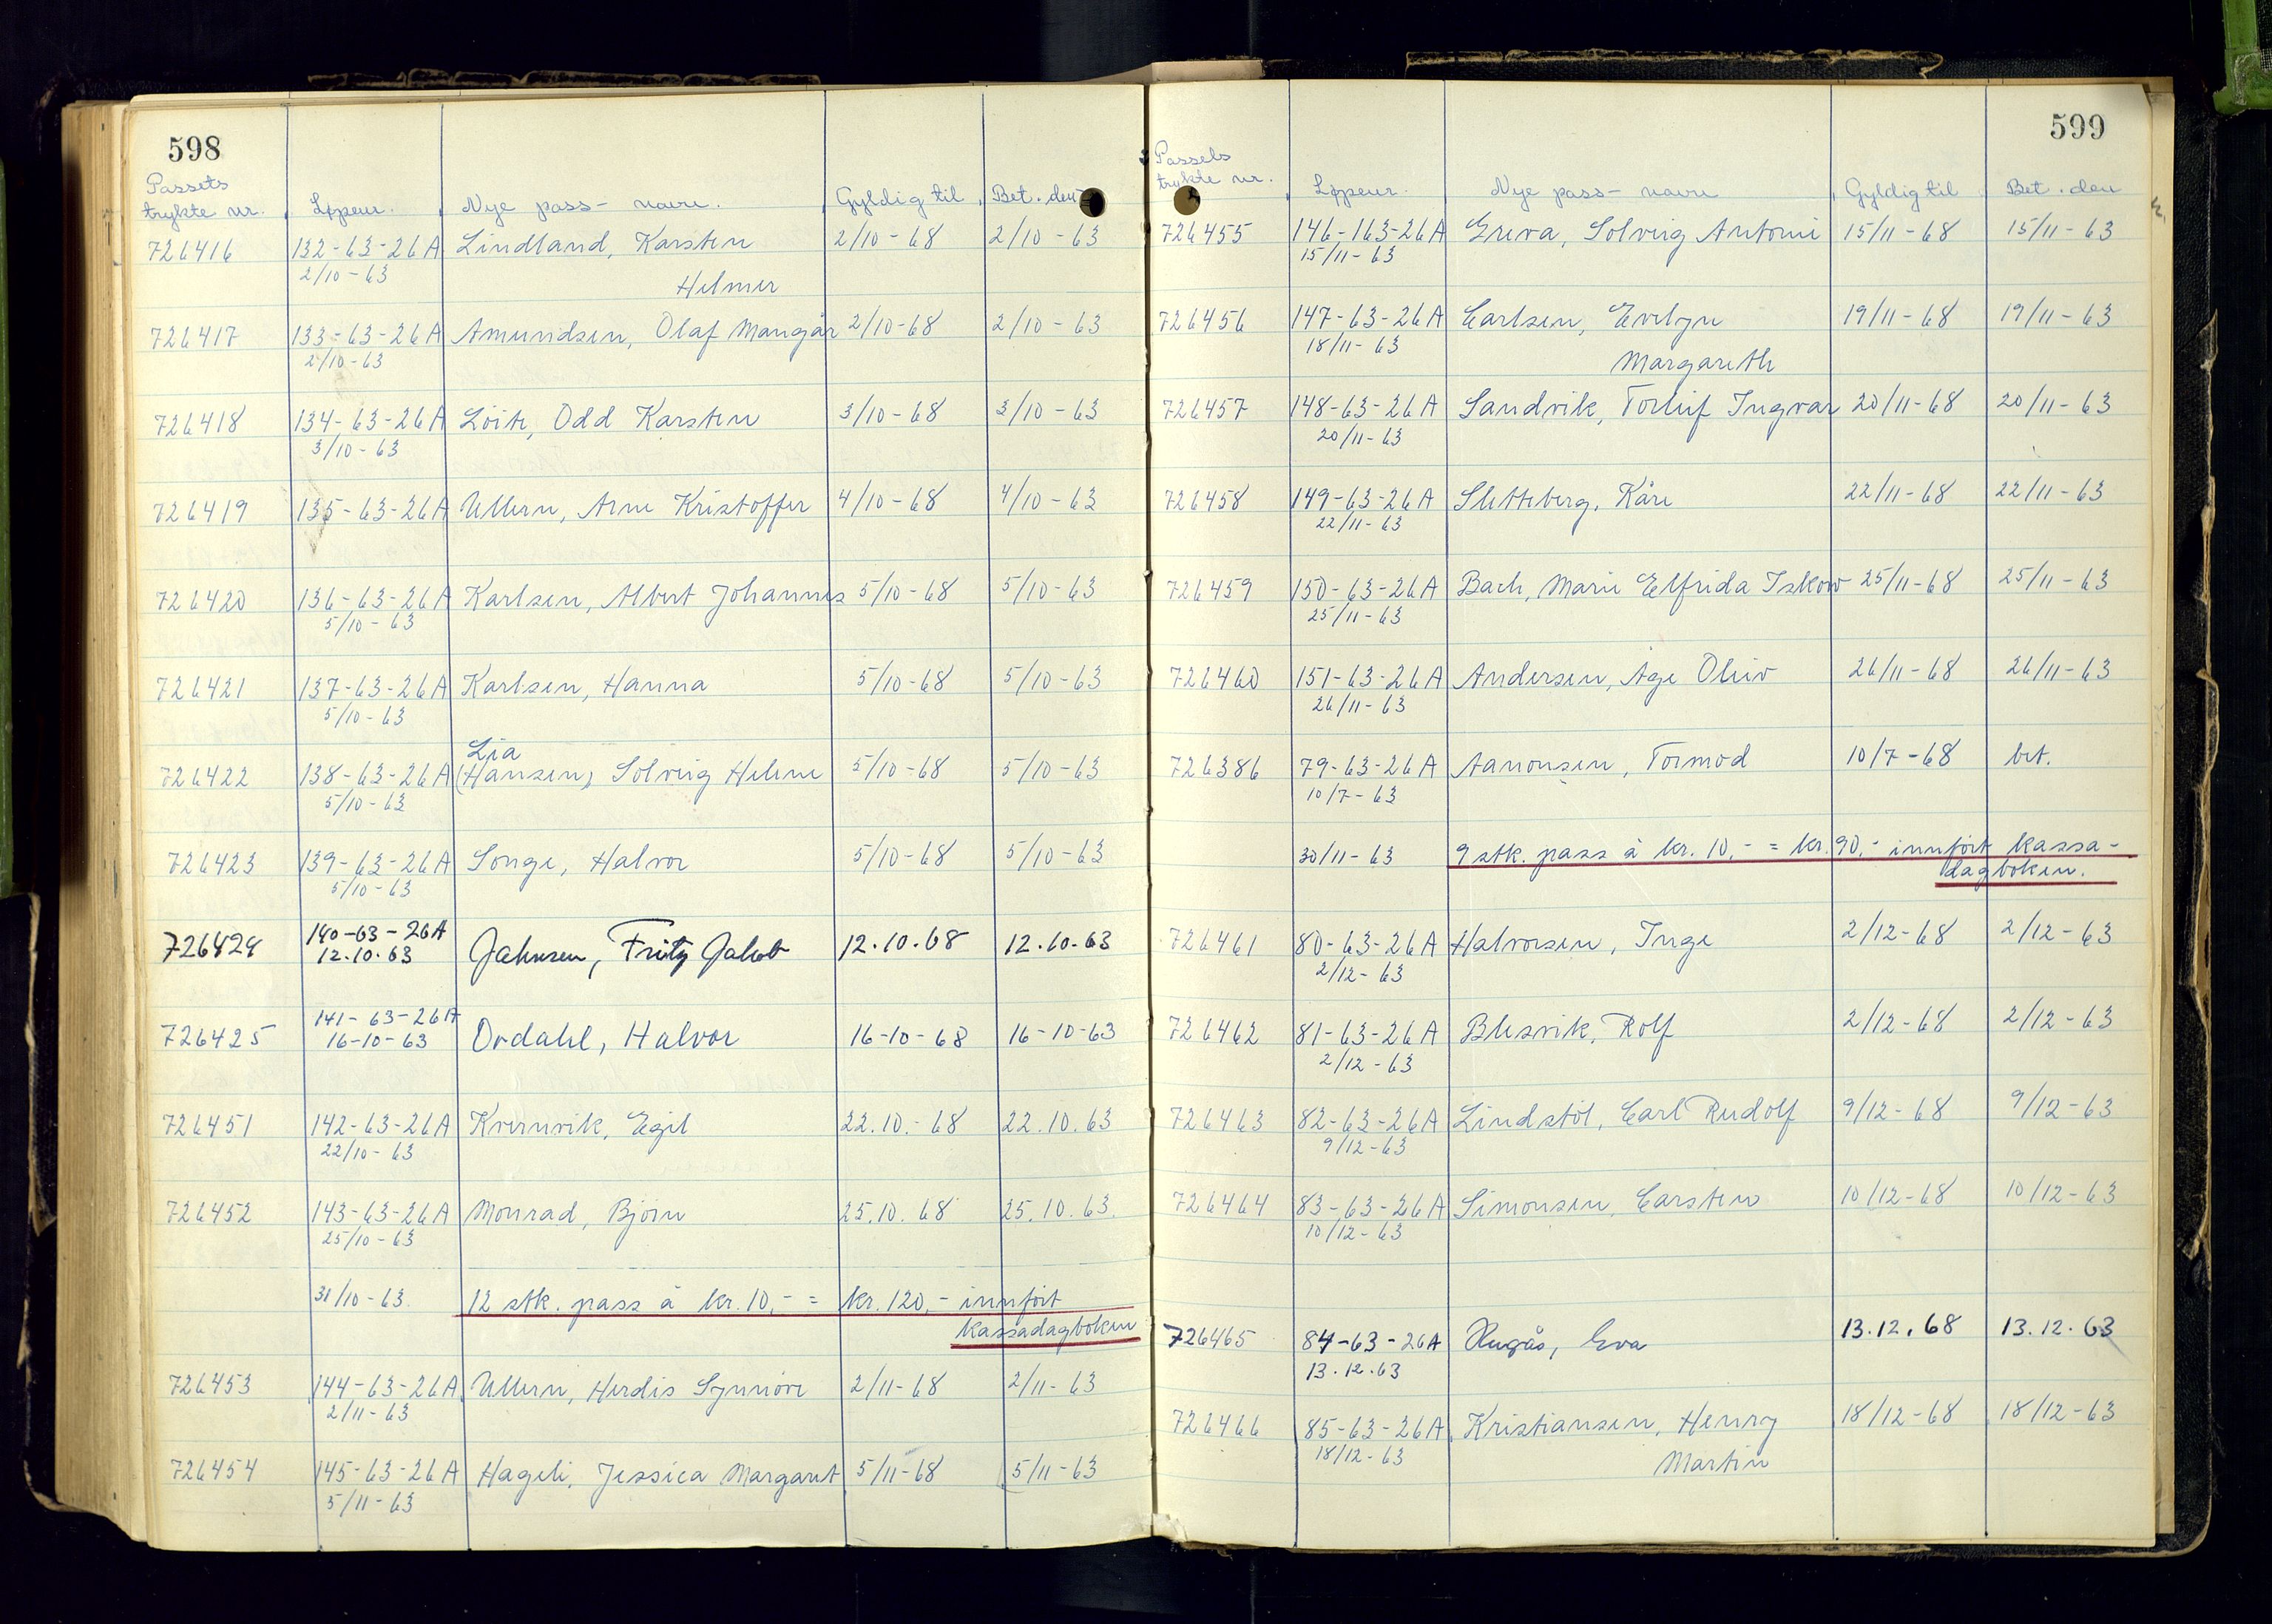 598
Passets
trykte nr. Løpenr. Nye pass - navn. Gyldig til Bet. den
726416 132-63-26A Lindland, Karsten 2/10-68 2/10-63
2/10-63 Helmer
726417 133-63-26A Amundsen, Olaf Mangår 2/10-68 2/10-63
2/10-63
726418 134-63-26A Löite, Odd Karsten 3/10-68 3/10-63
3/10-63
726419 135-63-26A Ullern, Arne Kristoffer 4/10-68 4/10-63
726420 136-63-26A Karlsen, Albert Johannes 5/10-68 5/10-63
5/10-63
726421 137-63-26A Karlsen, Hanna 5/10-68 5/10-63
5/10-63
Lia
726422 138-63-26A (Hansen) Solveig Helene 5/10-68 5/10-63
5/10-63
726423 139-63-26A Songe, Halvor 5/10-68 5/10-63
5/10-63
726424 140-63-26A Jahnsen, Fritz Jakob 12.10.68 12.10.63
12.10.63
726425 141-63-26A Ovdahl, Halvor 16-10-68 16-10-63
16-10-63
726451 142-63-26A Kvernvik, Egil 22.10.-68 22.10.63
22/10-63
726452 143-63-26A Monrad, Björn 25.10.68 25.10.63.
25/10-63
31/10-63. 12 stk. pass à kr. 10,- = kr. 120,- innfört
kassadagboken
726453 144-63-26A Ullern, Herdis Synnöve 2/11-68 2/11-63
2/11-63
726454 145-63-26A Hageli, Jessica Margaret 5/11-68 5/11-63
5/11-63
599
Passets
trykte nr. Løpenr. Nye pass - navn Gyldig til Bet. den
726455 146-163-26A Greva, Solveig Antonie 15/11-68 15/11-63
15/11-63
726456 147-63-26A Carlsen, Evelyn 19/11-68 19/11-63
18/11-63 Margareth
726457 148-63-26A Sandvik, Torleif Ingvar 20/11-68 20/11-63
20/11-63
726458 149-63-26A Sletteberg, Kåre 22/11-68 22/11-63
22/11-63
726459 150-63-26A Bach, Marie Elfrida Iskow 25/11-68 25/11-63
25/11-63
726460 151-63-26A Andersen, Åge Oliv 26/11-68 26/11-63
26/11-63
726386 79-63-26A Aanonsen, Tormod 10/7-68 bet.
10/7-63
30/11-63 9 stk. pass à kr. 10,- = kr. 90,- innfört kassa-
dagboken.
726461 80-63-26A Halvorsen, Inge 2/12-68 2/12-63
2/12-63
726462 81-63-26A Blesvik, Rolf 2/12-68 2/12-63
2/12-63
726463 82-63-26A Lindstöl, Carl Rudolf 9/12-68 9/12-63
9/12-63
726464 83-63-26A Simonsen, Carsten 10/12-68 10/12-63
10/12-63
726465 84-63-26A Hugås, Eva 13.12.68 13.12.63
13.12.63
726466 85-63-26A Kristiansen, Henry 18/12-68 18/12-63
18/12-63 Martin